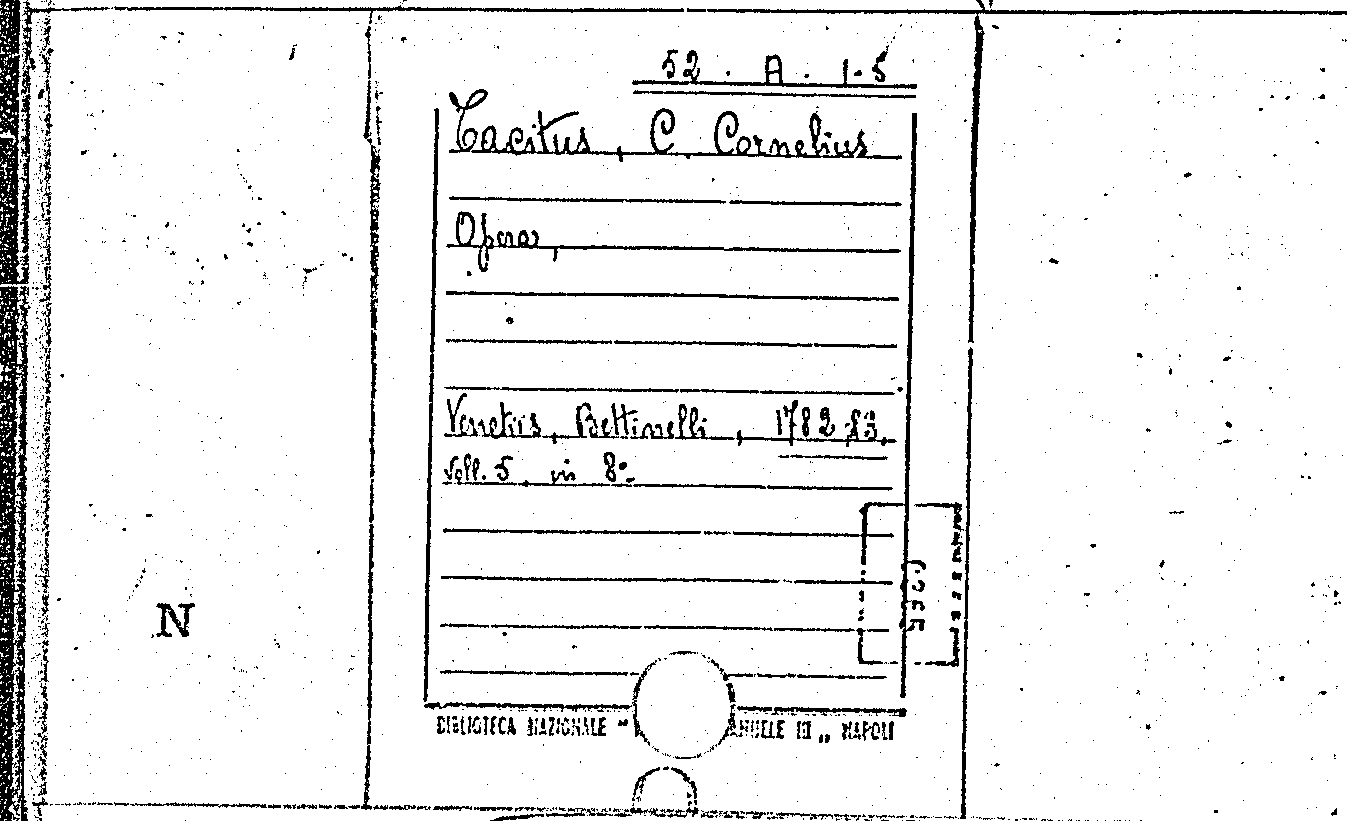 52 . A . 1-5
Tacitus, C. Cornelius
Opera,
Venetiis, Bettinelli, 1782-83.
Voll. 5 in 8°
N
BIBLIOTECA NAZIONALE " ANUELE III „ NAPOLI